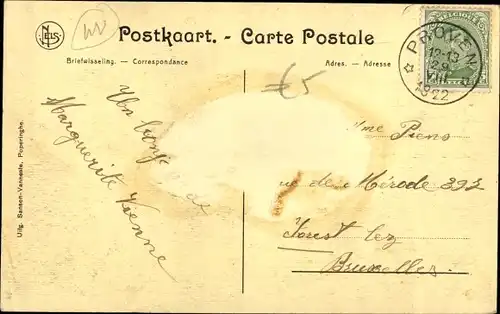 NELS
Postkaart. - Carte Postale
Briefwisseling. — Correspondance
Adres. — Adresse
BELGIQUE
PROVEN
12-13
29
VIII
1922
€5
Un bonj
Marguerite
Mme Piens
rue de Mérode 392
Forest lez
Bruxelles
Uitg. Sansen-Vanneste, Poperinghe.